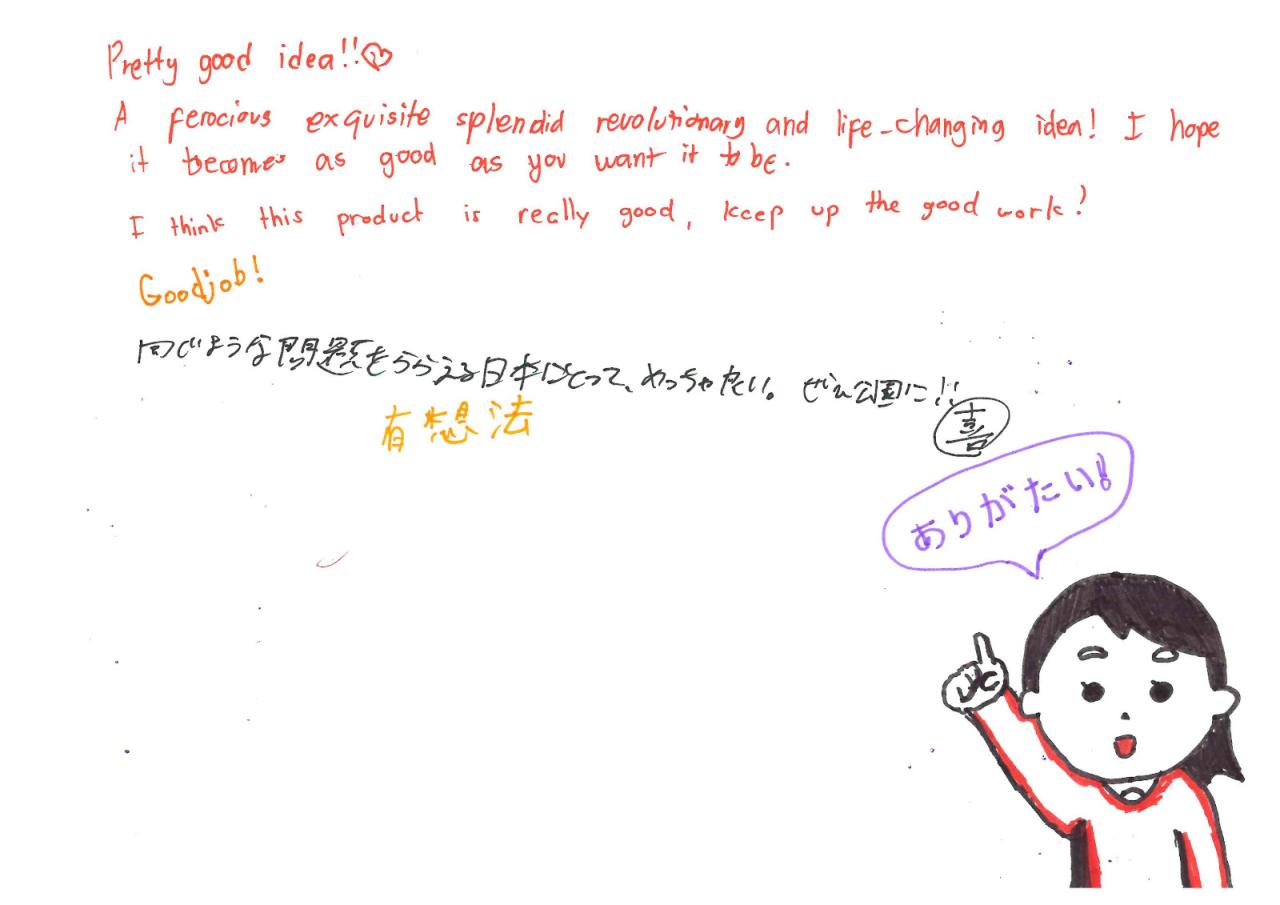 Pretty good idea!!
A ferocious exquisite splendid revolutionary and life-changing idea! I hope
it becomes as good as you want it to be.
I think this product is really good, keep up the good work!
Good job!
同じような問題をららえる日本にとって、めっちゃたい。ぜん公園に!!
喜
有想法
ありがたい!